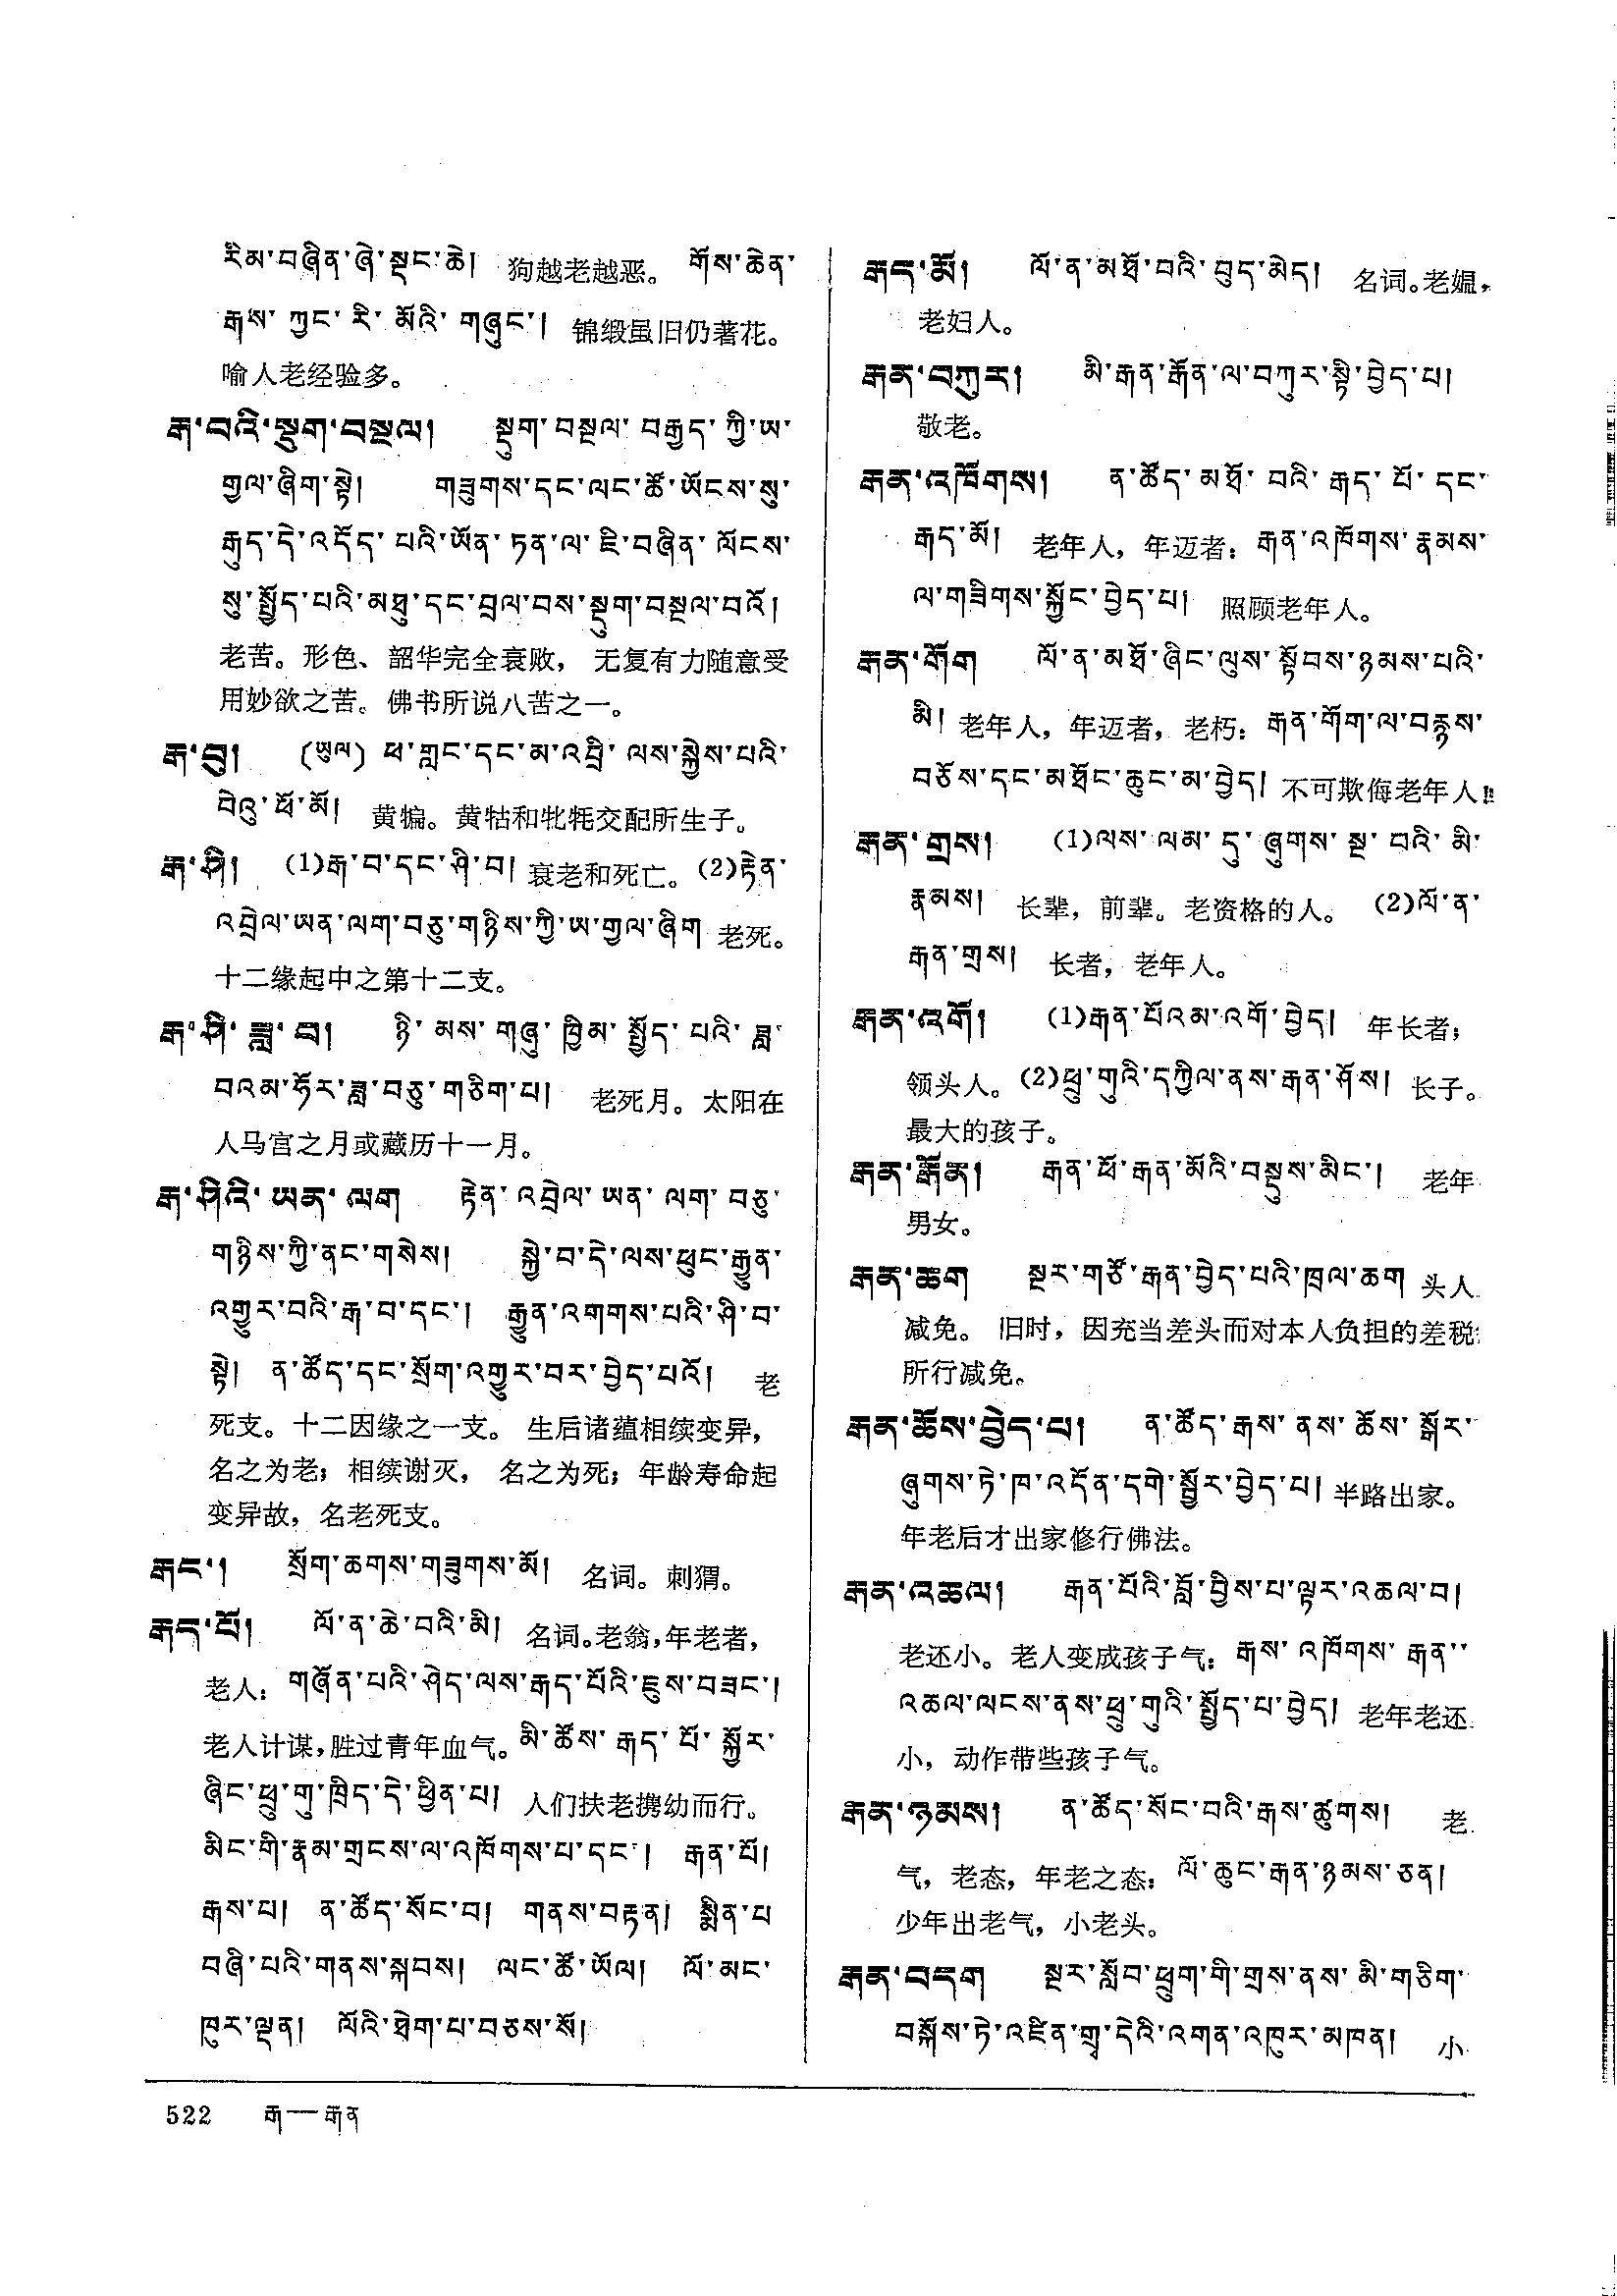 རིམ་བཞིན་ཞེ་སྡང་ཆེ། 狗越老越恶。 གོས་ཆེན་
རྒས་ ཀྱང་ རི་ མོའི་ གཞུང་། 锦缎虽旧仍著花。
喻人老经验多。
རྒ་བའི་སྡུག་བསྔལ། སྡུག་བསྔལ་ བརྒྱད་ ཀྱི་ཨ་
གྱལ་ཞིག་སྟེ། གཟུགས་དང་ལང་ཚོ་ཡོངས་སུ་
རྒུད་དེ་འདོད་ པའི་ཡོན་ ཏན་ལ་ ཇི་བཞིན་ ལོངས་
སུ་སྤྱོད་པའི་མཐུ་དང་བྲལ་བས་སྡུག་བསྔལ་བའོ།
老苦。形色、韶华完全衰败， 无复有力随意受
用妙欲之苦。佛书所说八苦之一。
རྒ་བུ། (ཡུལ) ཕ་གླང་དང་མ་འབྲི་ ལས་སྐྱེས་པའི་
བེའུ་ཕོ་མོ། 黄犏。黄牯和牝牦交配所生子。
རྒ་ཤི། (1)རྒ་བ་དང་ཤི་བ། 衰老和死亡。(2)རྟེན་
འབྲེལ་ཡན་ལག་བཅུ་གཉིས་ཀྱི་ཨ་གྱལ་ཞིག 老死。
十二缘起中之第十二支。
རྒ་ཤི་ ཟླ་ བ། ཉི་ མས་ གཞུ་ ཁྱིམ་ སྤྱོད་ པའི་ ཟླ་
བའམ་ཧོར་ཟླ་བཅུ་གཅིག་པ། 老死月。太阳在
人马宫之月或藏历十一月。
རྒ་ཤིའི་ ཡན་ ལག རྟེན་ འབྲེལ་ ཡན་ ལག་ བཅུ་
གཉིས་ཀྱི་ནང་གསེས། སྐྱེ་བ་དེ་ལས་ཕུང་རྒྱུན་
འགྱུར་བའི་རྒ་བ་དང་། རྒྱུན་འགགས་པའི་ཤི་བ་
སྟེ། ན་ཚོད་དང་སྲོག་འགྱུར་བར་བྱེད་པའོ། 老
死支。十二因缘之一支。 生后诸蕴相续变异，
名之为老；相续谢灭， 名之为死；年龄寿命起
变异故，名老死支。
རྒང་། སྲོག་ཆགས་གཟུགས་མོ། 名词。刺猬。
རྒད་པོ། ལོ་ན་ཆེ་བའི་མི། 名词。老翁,年老者，
老人: གཞོན་པའི་ཤེད་ལས་རྒད་པོའི་ཇུས་བཟང་།
老人计谋,胜过青年血气。མི་ཚོས་ རྒད་ པོ་ སྐྱོར་
ཞིང་ཕྲུ་གུ་ཁྲིད་དེ་ཕྱིན་པ། 人们扶老携幼而行。
མིང་གི་རྣམ་གྲངས་ལ་འཁོགས་པ་དང་། རྒན་པོ།
རྒས་པ། ན་ཚོད་སོང་བ། གནས་བརྟན། སྨིན་པ
བཞི་པའི་གནས་སྐབས། ལང་ཚོ་ཡོལ། ལོ་མང་
ཁུར་ལྡན། ལོའི་ཐེག་པ་བཅས་སོ།
རྒད་མོ། ལོ་ན་མཐོ་བའི་བུད་མེད། 名词。老媪，
老妇人。
རྒན་བཀུར། མི་རྒན་རྒོན་ལ་བཀུར་སྟི་བྱེད་པ།
敬老。
རྒན་འཁོགས། ན་ཚོད་མཐོ་ བའི་ རྒད་ པོ་ དང་
རྒད་མོ། 老年人，年迈者: རྒན་འཁོགས་རྣམས་
ལ་གཟིགས་སྐྱོང་བྱེད་པ། 照顾老年人。
རྒན་གོག ལོ་ན་མཐོ་ཞིང་ལུས་སྟོབས་ཉམས་པའི་
མི། 老年人，年迈者，老朽: རྒན་གོག་ལ་བརྙས་
བཅོས་དང་མཐོང་ཆུང་མ་བྱེད། 不可欺侮老年人!
རྒན་གྲས། (1)ལས་ ལམ་ དུ་ ཞུགས་ སྔ་ བའི་ མི་
རྣམས། 长辈，前辈。老资格的人。 (2)ལོ་ན་
རྒན་གྲས། 长者，老年人。
རྒན་འགོ། (1)རྒན་པོའམ་འགོ་བྱེད། 年长者；
领头人。(2)ཕྲུ་གུའི་དཀྱིལ་ནས་རྒན་ཤོས། 长子。
最大的孩子。
རྒན་རྒོན། རྒན་ཕོ་རྒན་མོའི་བསྡུས་མིང་། 老年
男女。
རྒན་ཆག སྔར་གཙོ་རྒན་བྱེད་པའི་ཁྲལ་ཆག 头人
减免。 旧时，因充当差头而对本人负担的差税
所行减免。
རྒན་ཆོས་བྱེད་པ། ན་ཚོད་རྒས་ ནས་ ཆོས་ སྒོར་
ཞུགས་ཏེ་ཁ་འདོན་དགེ་སྦྱོར་བྱེད་པ། 半路出家。
年老后才出家修行佛法。
རྒན་འཆལ། རྒན་པོའི་བློ་བྱིས་པ་ལྟར་འཆལ་བ།
老还小。老人变成孩子气: རྒས་ འཁོགས་ རྒན་
འཆལ་ལངས་ནས་ཕྲུ་གུའི་སྤྱོད་པ་བྱེད། 老年老还
小，动作带些孩子气。
རྒན་ཉམས། ན་ཚོད་སོང་བའི་རྒས་ཚུགས། 老
气，老态，年老之态: ལོ་ཆུང་རྒན་ཉམས་ཅན།
少年出老气，小老头。
རྒན་བདག སྔར་སློབ་ཕྲུག་གི་གྲས་ནས་ མི་གཅིག་
བསྐོས་ཏེ་འཛིན་གྲྭ་དེའི་འགན་འཁུར་མཁན། 小
522 རྒ—རྒན